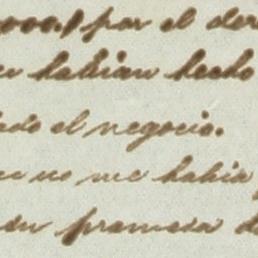 000.) por el der
habian hecho
ado el negocio.
no me habia
su promesa d